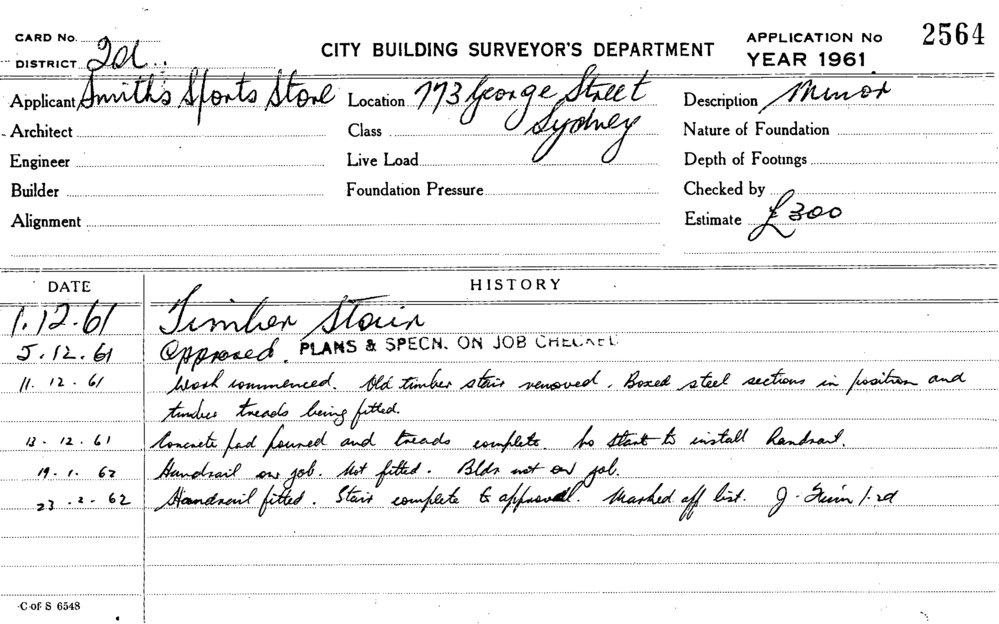 CARD No.
APPLICATION No 2564
DISTRICT 2d
CITY BUILDING SURVEYOR'S DEPARTMENT
YEAR 1961
Applicant Smith's Sports Store
Location 773 George Street
Sydney
Description Minor
Architect
Class
Nature of Foundation
Engineer
Live Load
Depth of Footings
Builder
Foundation Pressure
Checked by
Alignment
Estimate £300
DATE HISTORY
1.12.61 Timber Stair
5.12.61 Approved. PLANS & SPECN. ON JOB CHECKED
11.12.61 Work commenced. Old timber stair removed. Boxed steel sections in position and
timber treads being fitted.
13.12.61 Concrete pad poured and treads complete. to start to install handrail.
19.1.62 Handrail on job. Not fitted. Bldr not on job.
23.2.62 Handrail fitted. Stair complete to approval. Marked off list. J.
C of S 6548